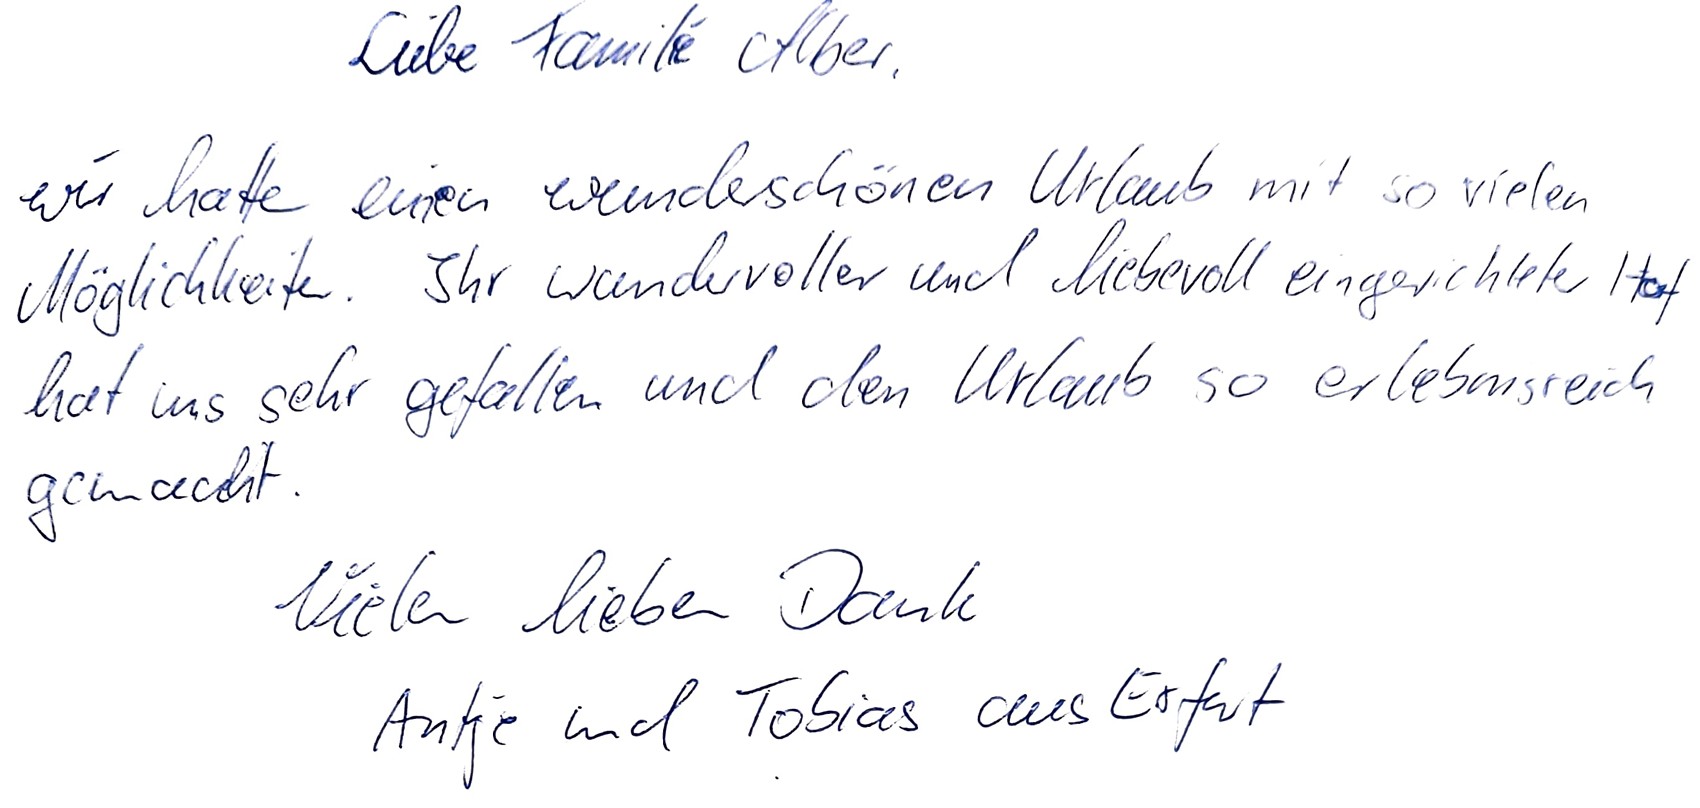 Liebe Familie Alber,
wir hatte einen wunderschönen Urlaub mit so vielen
Möglichkeiten. Ihr wundervoller und liebevoll eingerichteter Hof
hat uns sehr gefallen und den Urlaub so erlebensreich
gemacht.
Vielen lieben Dank
Antje und Tobias aus Erfurt